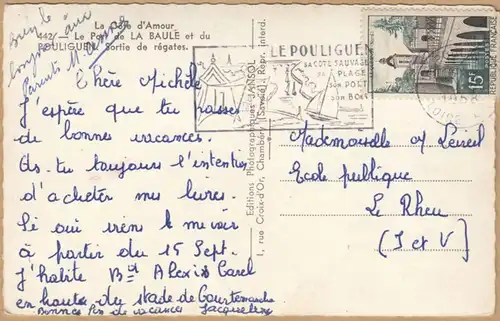 La Côte d'Amour
442/ — Le Port de LA BAULE et du
POULIGUEN Sortie de régates.
Bien le
bonjour aux
Parents
Chère Michèle
J'espère que tu passes
de bonnes vacances.
As-tu toujours l'intention
d'acheter mes livres.
Si oui viens le me voir
à partir du 15 Sept.
J'habite Bd Alexis Carel
en haut du stade de Courtemanche
Bonnes fin de vacances Jacqueline
Editions Photographiques JANSOL
1, rue Croix-d'Or, Chambéry (Savoie) Repr. interd.
LE POULIGUEN
SA COTE SAUVAGE
SA PLAGE
SON PORT
SON BOIS
15F
Mademoiselle M Loireil
Ecole publique
Le Rheu
(I et V)